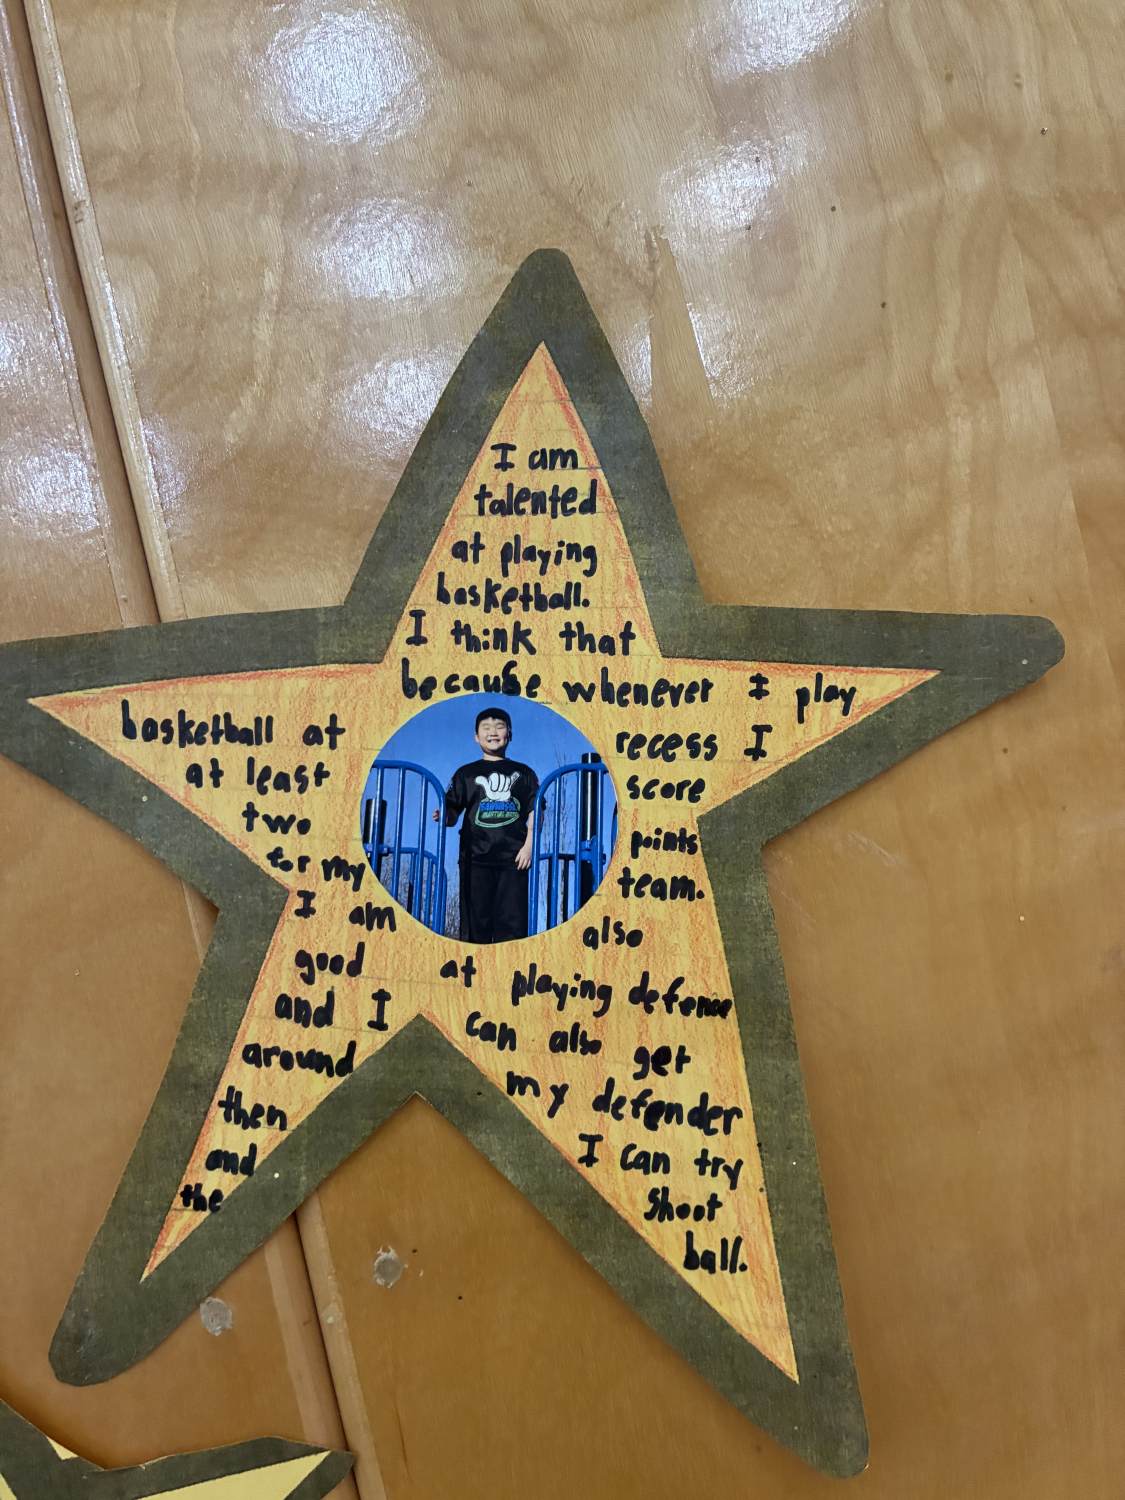 I am
talented
at playing
basketball.
I think that
because whenever I play
basketball at recess I
at least score
two points
for my team.
I am also
good at playing defence
and I can also get
around my defender
then I can try
and shoot
the ball.